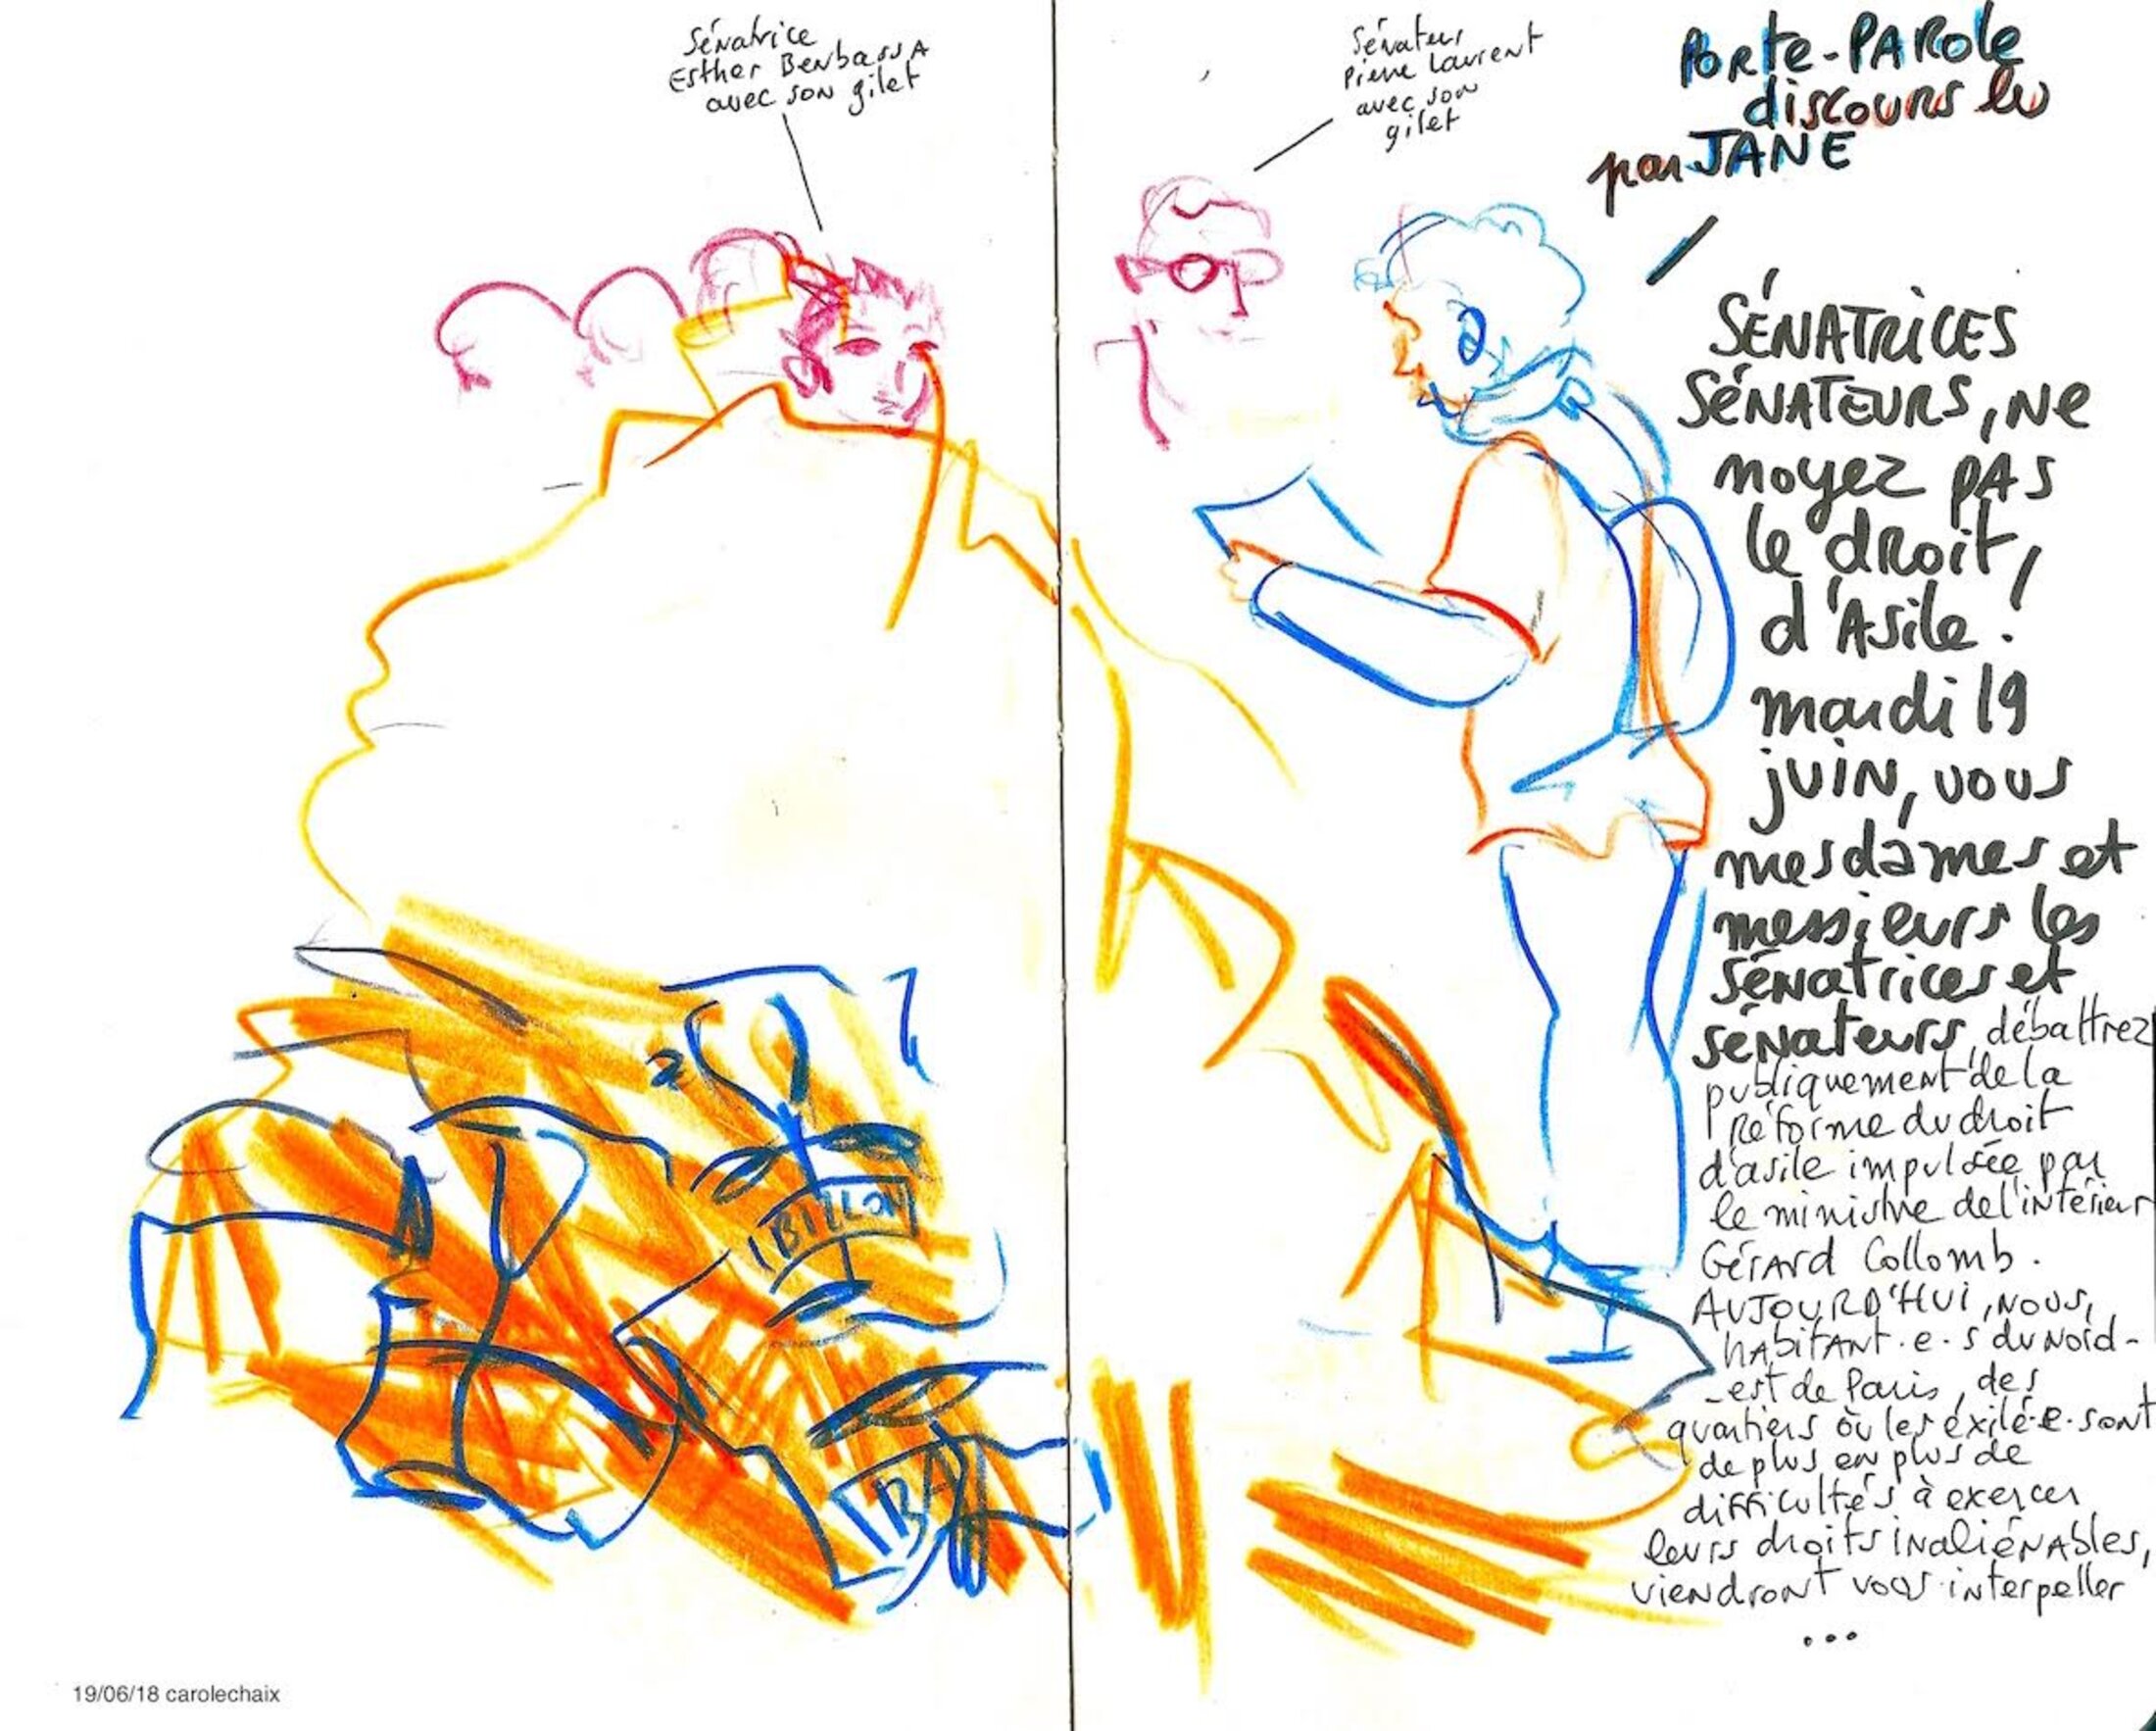 Sénatrice
Esther BenbassA
avec son gilet
Sénateur
Pierre Laurent
avec son
gilet
PORte-PARole
discours lu
par JANE
SÉNATRICES
SÉNATEURS, Ne
noyez PAS
le droit
d'Asile !
mardi 19
juin, vous
mesdames et
messieurs les
sénatrices et
sénateurs, débattrez
publiquement de la
Réforme du droit
d'asile impulsée par
le ministre de l'intérieur
Gérard Collomb.
AUJOURD'HUI, NOUS,
hAbitANt.e.s du Nord-
-est de Paris, des
quartiers où les exilé.e.sont
de plus en plus de
difficultés à exercer
leurs droits inaliénAbles,
viendront vous interpeller
...
BILLON
BA
19/06/18 carolechaix